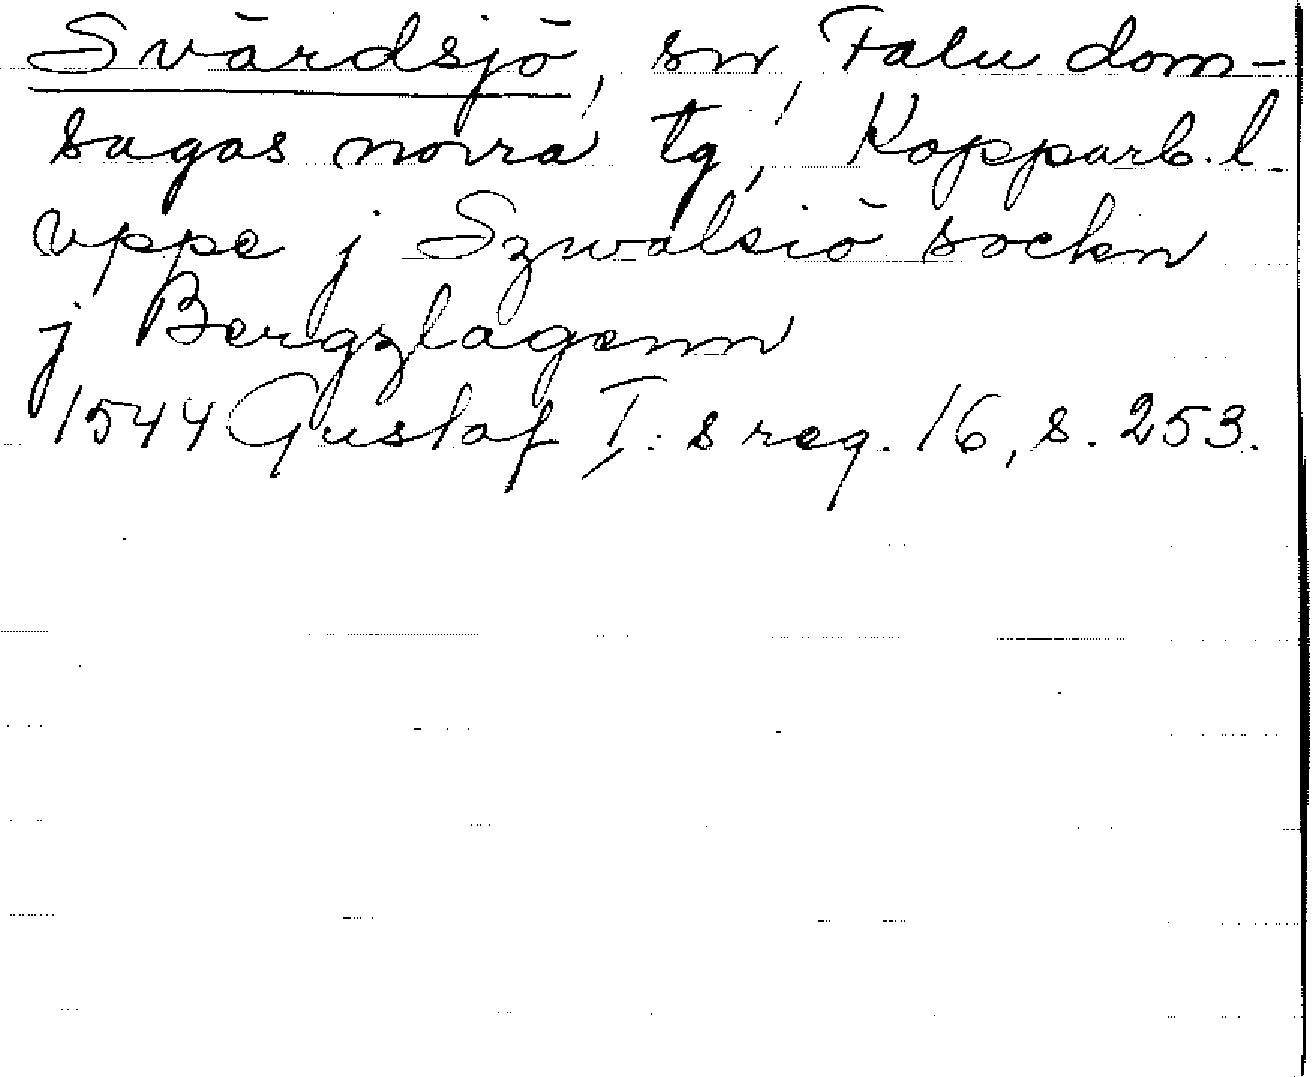 Svärdsjö, sn, Falu dom-
sagas norra tg, Kopparb. l.
vppe j Szwalsiö sockn
j Bergzlagenn
1544 Gustaf I:s reg. 16, s. 253.